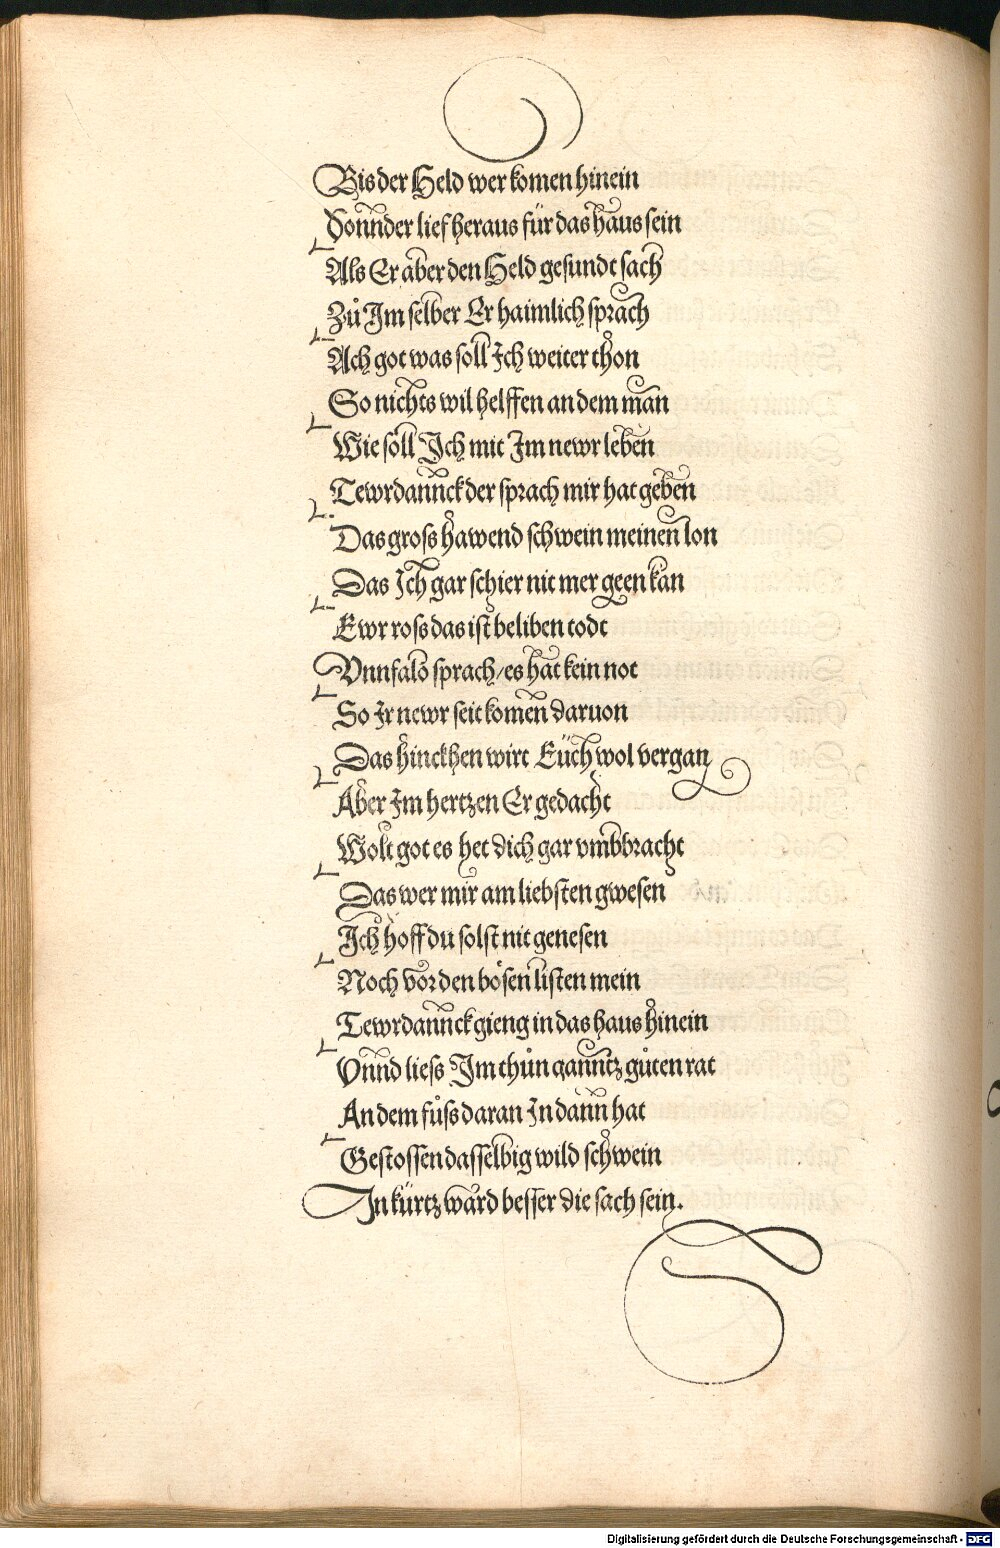 Bis der Held wer komen hinein
Sonnder lief heraus für das haus sein
Als Er aber den Held gesundt sach
Zů Im selber Er haimlich sprach
Ach got was soll Ich weiter thon
So nichts wil helffen an dem man
Wie soll Ich mit Im newr leben
Tewrdannck der sprach mir hat geben
Das gross hawend schwein meinen lon
Das Ich gar schier nit mer geen kan
Ewr ross das ist beliben todt
Vnnfalo sprach / es hat kein not
So Ir newr seit komen daruon
Das hinckhen wirt Euch wol vergan
Aber Im hertzen Er gedacht
Wolt got es het dich gar vmbbracht
Das wer mir am liebsten gwesen
Ich hoff du solst nit genesen
Noch vor den bösen listen mein
Tewrdannck gieng in das haus hinein
Vnnd liess Im thůn ganntz gůten rat
An dem fůss daran In dann hat
Gestossen dasselbig wild schwein
In kürtz ward besser die sach sein.
Digitalisierung gefördert durch die Deutsche Forschungsgemeinschaft - DFG